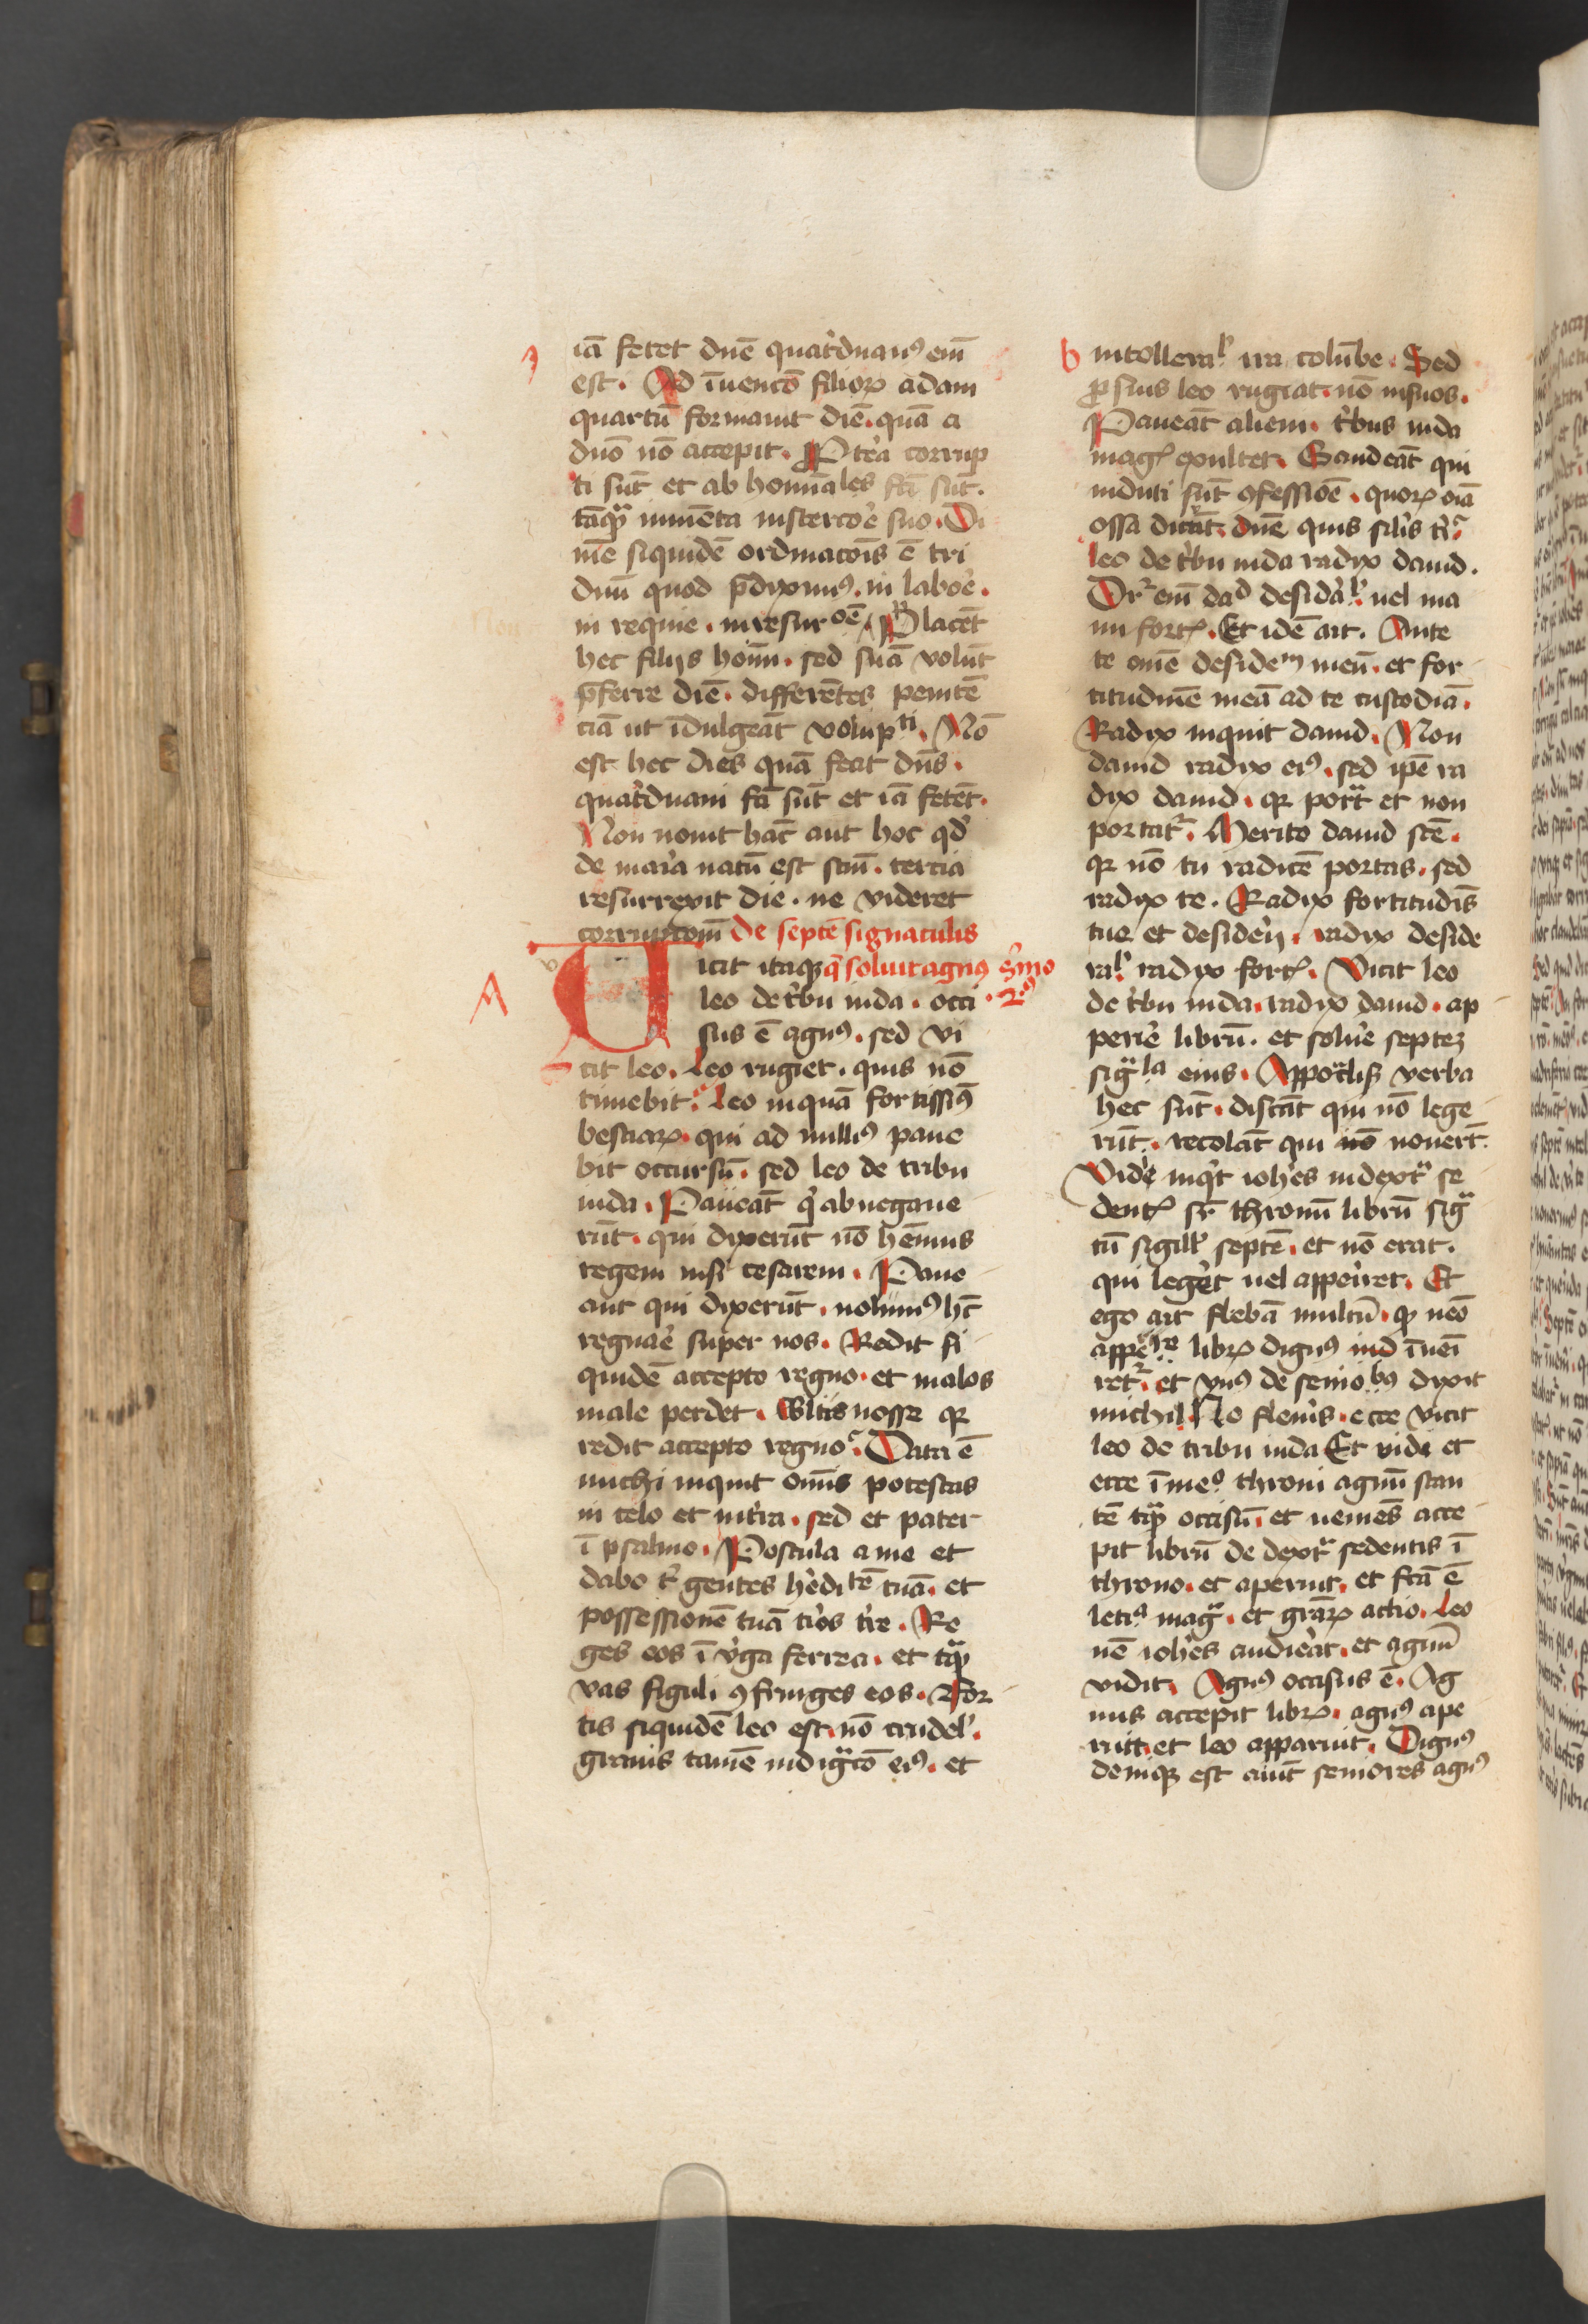 iā fetet dn̄e quat'duaꝰ em̄
est. Ad īuencō filioꝝ adam
quartū formauit diē. quā a
dn̄o nō accepit. Ptea corrup
ti sūt et ab hoīables fc̄i sūt.
tāqᷓ iumēta in stercoꝛe suo. Di
uīe siquidē ordinacōis ē tri
duū quod p̄diximꝰ. in laboꝛe.
in requie. in resurꝛoē. Placēt
hec filijs hoīm. sed suā volūt
p̄ferre diē. differētes penitē
ciā ut īdulgeāt volupti. Nō
est hec dies quā fecit dn̄s.
quat'duani fc̄i sūt et iā fetēt.
Non nouit hāc aut hoc qd'
de maria natū est scm̄. tercia
resurrexit die. ne videret
corrupcōm De septē signaculis
v
icit itaqꝫ q̄ soluit agnꝰ s'mo
A
leo de t'bu iuda. occi 2ꝰ
sus ē agnꝰ. sed vi
cit leo. Leo rugiet. quis nō
timebit. Leo inquā fortissīꝰ
bestiaꝝ. qui ad nulliꝰ paue
bit occursū. sed leo de tribu
iuda. Paueāt q' abnegaue
rūt. qui dixerūt nō hēmus
regem nisi cesarem. Paue
ant qui dixerūt. nolumꝰ hc̄
regnaꝛe super nos. Redit si
quidē accepto regno. et malos
male perdet. Wltis nosse qꝛ
redit accepto regno. Data ē
michi inquit om̄is potestas
in celo et in t'ra. sed et pater
ī psalmo. Postula a me et
dabo t' gentes h'editē tuā. et
possessionē tuā t'ios t're. Re
ges eos ī v'ga ferrea. et tqᷓ
vas figuli ꝯfringes eos. For
tis siquidē leo est. nō crudel'.
grauis tamē indigᷓcō eiꝰ. et
b intolleral' ira colūbe. Sed
ꝓ suis leo rugiat. nō in suos.
Paueāt alieni. t'bus iuda
magꝭ exultet. Gaudeāt qui
induti sūt ꝯfessiōe. quoꝝ oīa
ossa dicūt. dn̄e quis silis t'.
Leo de t'bu iuda radix dauid.
Dr̄ em̄ dad desid'al'. uel ma
nu fortꝭ. Et idē ait. Ante
te om̄e desidem meū. et for
titudinē meā ad te custodiā.
Radix inquit dauid. Non
dauid radix eiꝰ. sed ip̄e ra
dix dauid. qꝛ portᷓt et non
portat'. Merito dauid scē.
qꝛ nō tu radicē portas. sed
radix te. Radix fortitudīs
tue et desid'ij. radix deside
ral' radix fortꝭ. Vicit leo
de t'bu iuda. radix dauid. ap
perie librū. et solue septeꝫ
sigᷓla eius. Appoclis̄ verba
hec sūt. discāt qui nō lege
rūt. recolāt qui nouerūt.
Vide inqt ioh'es in dextᷓ se
dentꝭ sr̄ thronū librū sigᷓ
tū sigill' septē. et nō erat.
qui leget uel apperiret. Et
ego ait flebā multū. qꝛ nēo
appeire libꝝ dignꝰ īuēi
ret'. et vnꝰ de seniobꝰ dixit
michi. Ne fleuis. ecce vicit
leo de tribu iuda Et vidi et
ecce ī meo throni agnū stan
tē tqᷓ occisū. et uenies acce
pit librū de dextᷓ sedentis ī
throno. et aperuit. et fc̄a ē
leticᷓ magᷓ. et gr̄aꝝ actio. Leo
nē ioh'es audierat. et agnū
vidit. Agnꝰ occisus ē. Ag
nus accepit libꝝ. agnꝰ ape
ruit. et leo apparuit. Dignꝰ
deniqꝫ est aiūt seniores agnꝰ